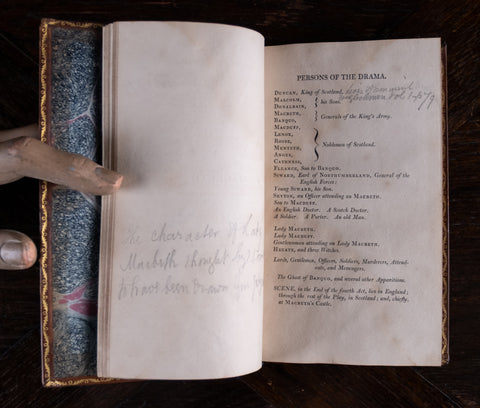 The character of Lady
Macbeth thought by
to have been drawn
PERSONS OF THE DRAMA.
DUNCAN, King of Scotland.
MALCOLM,
DONALBAIN,
his Sons.
MACBETH,
BANQUO,
Generals of the King's Army.
MACDUFF,
LENOX,
ROSSE,
MENTETH,
ANGUS,
CATHNESS,
Noblemen of Scotland.
FLEANCE, Son to BANQUO.
SIWARD, Earl of NORTHUMBERLAND, General of the
English Forces:
Young SIWARD, his Son.
SEYTON, an Officer attending on MACBETH.
Son to MACDUFF.
An English Doctor. A Scotch Doctor.
A Soldier. A Porter. An old Man.
Lady MACBETH.
Lady MACDUFF.
Gentlewomen attending on Lady MACBETH.
HECATE, and three Witches.
Lords, Gentlemen, Officers, Soldiers, Murderers, Attend-
ants, and Messengers.
The Ghost of BANQUO, and several other Apparitions.
SCENE, in the End of the fourth Act, lies in England;
through the rest of the Play, in Scotland; and, chiefly,
at MACBETH'S Castle.